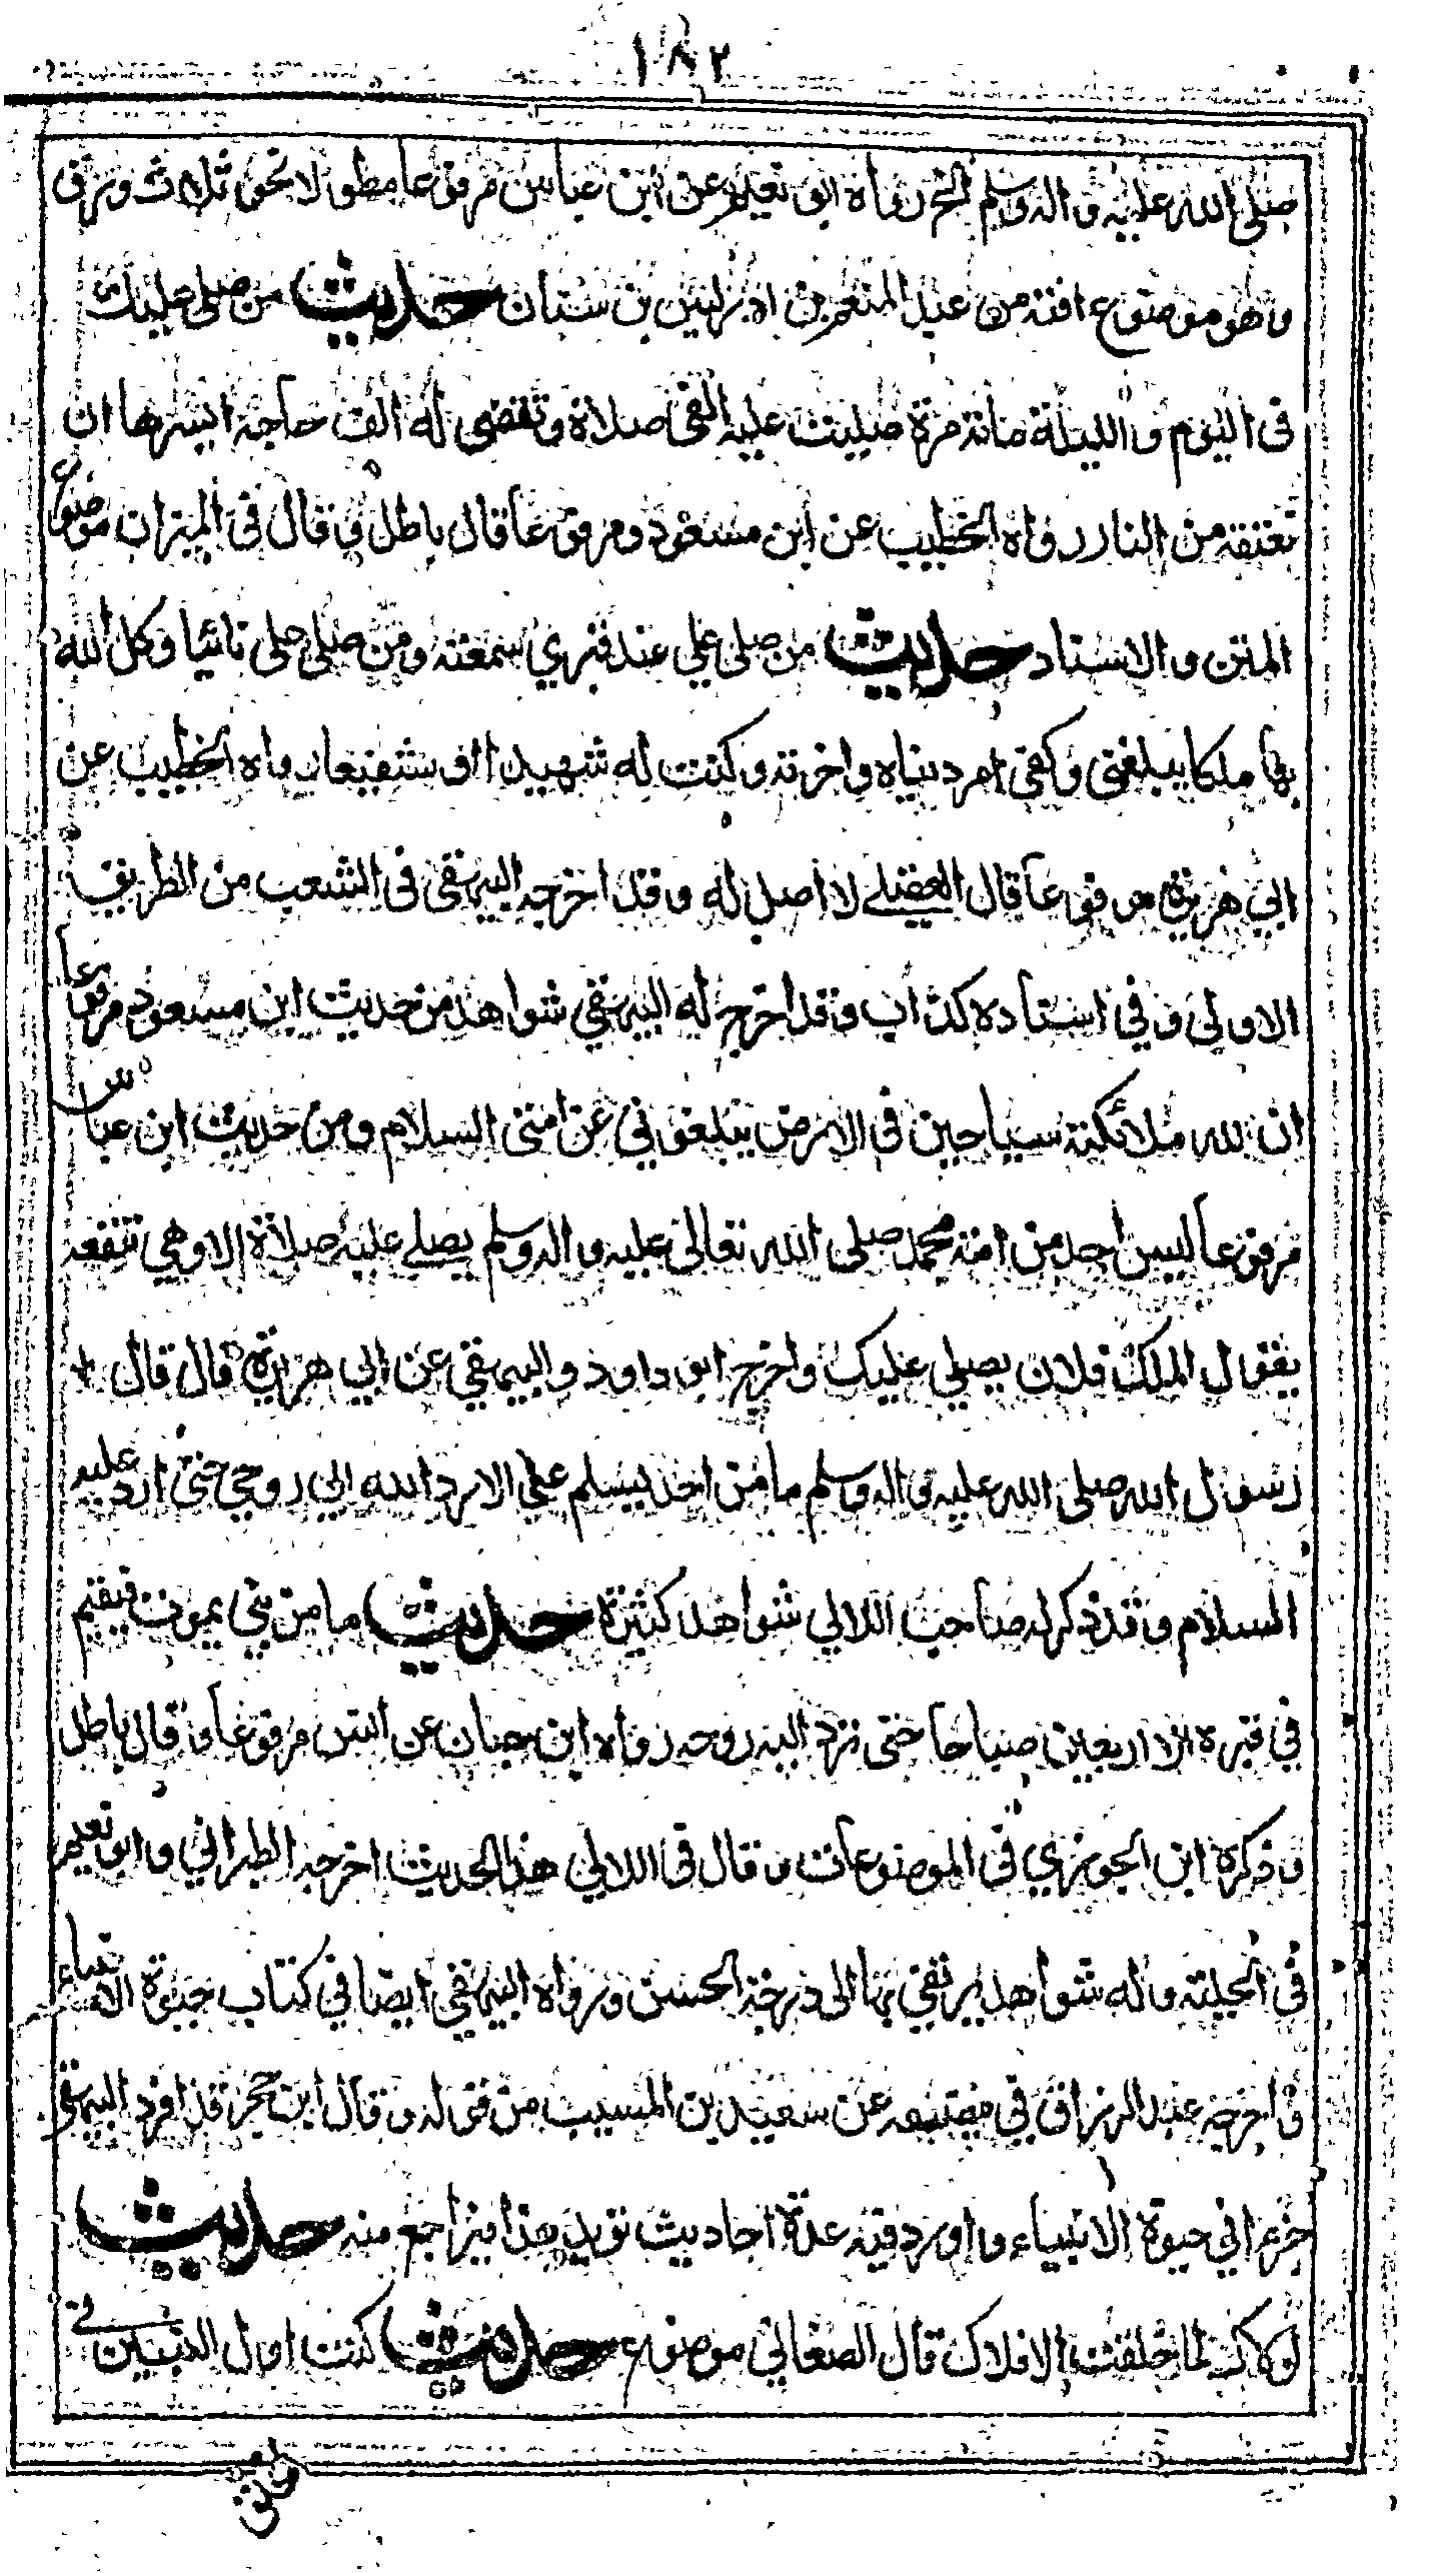 ١٨٢
صلى الله عليه واله وسلم الخ رواه ابو نعيم عن ابن عباس مرفوعا مطولا نحو ثلاث ورق
وهو موضوع افته من عبد المنعم بن ادريس بن سنان حديث من صلى عليك
فى اليوم والليلة مائة مرة صليت عليه الفى صلاة وتقضى له الف حاجة ايسرها ان
تعتقه من النار رواه الخطيب عن ابن مسعود مرفوعا قال باطل قال فى الميزان موضوع
المتن والاسناد حديث من صلى علي عند قبري سمعته ومن صلى علي نائيا وكل الله
بها ملكا يبلغنى وكفى امر دنياه واخرته وكنت له شهيدا او شفيعا رواه الخطيب عن
ابي هريرة مرفوعا قال العقيلے لا اصل له وقد اخرجه البيهقى فى الشعب من الطريق
الاولى وفي اسناده كذاب وقد اخرج له البيهقي شواهد من حديث ابن مسعود مرفوعا
ان لله ملائكة سياحين فى الارض يبلغوني عن امتى السلام ومن حديث ابن عباس
مرفوعا ليس احد من امة محمد صلى الله تعالى عليه واله وسلم يصلے عليه صلاة الا وهي تبلغه
يقول الملك فلان يصلي عليك واخرج ابو داود والبيهقي عن ابي هريرة قال قال
رسول الله صلى الله عليه واله وسلم ما من احد يسلم علي الا رد الله الي روحي حتى ارد عليه
السلام وقد ذكر له صاحب اللالي شواهد كثيرة حديث ما من نبي يموت فيقيم
في قبره الا اربعين صباحا حتى ترد اليه روحه رواه ابن حبان عن انس مرفوعا وقال باطل
وذكره ابن الجوزي فى الموضوعات وقال فى اللالي هذا الحديث اخرجه الطبراني وابو نعيم
فى الحلية وله شواهد يرتقي بها الى درجة الحسن ورواه البيهقي ايضا في كتاب حيوة الانبياء
واخرجه عبد الرزاق في مصنفه عن سعيد بن المسيب من قوله وقال ابن حجر قد افرد البيهقي
جزءا في حيوة الانبياء واورد فيه عدة احاديث تويد هذا فيراجع منه حديث
لولاك لما خلقت الافلاك قال الصغاني موضوع حديث كنت اول النبيين فى